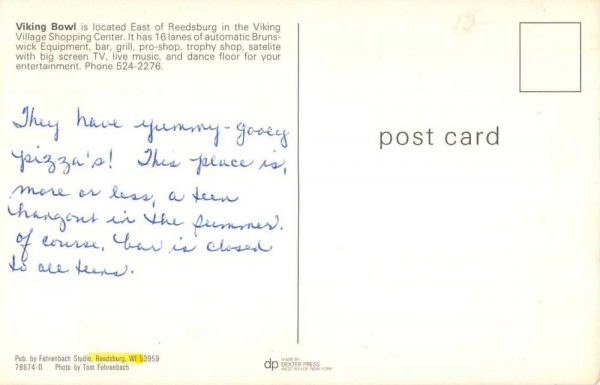 Viking Bowl is located East of Reedsburg in the Viking
Village Shopping Center. It has 16 lanes of automatic Bruns-
wick Equipment, bar, grill, pro-shop, trophy shop, satelite
with big screen TV, live music, and dance floor for your
entertainment. Phone 524-2276.
They have yummy-gooey
pizza's! This place is,
more or less, a teen
hangout in the summer.
Of course, bar is closed
to all teens.
post card
Pub. by Fehrenbach Studio, Reedsburg, WI 53959
78674-D Photo by Tom Fehrenbach
dp
MADE BY
DEXTER PRESS
WEST NYACK, NEW YORK